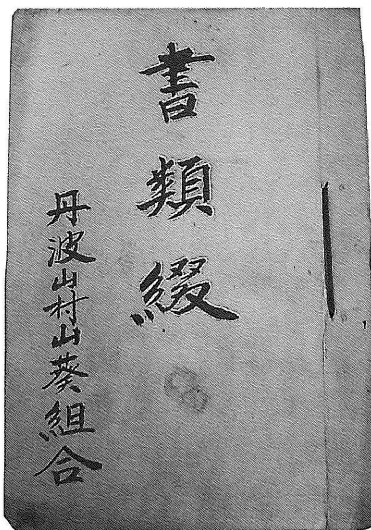 書類綴
丹波山村山葵組合